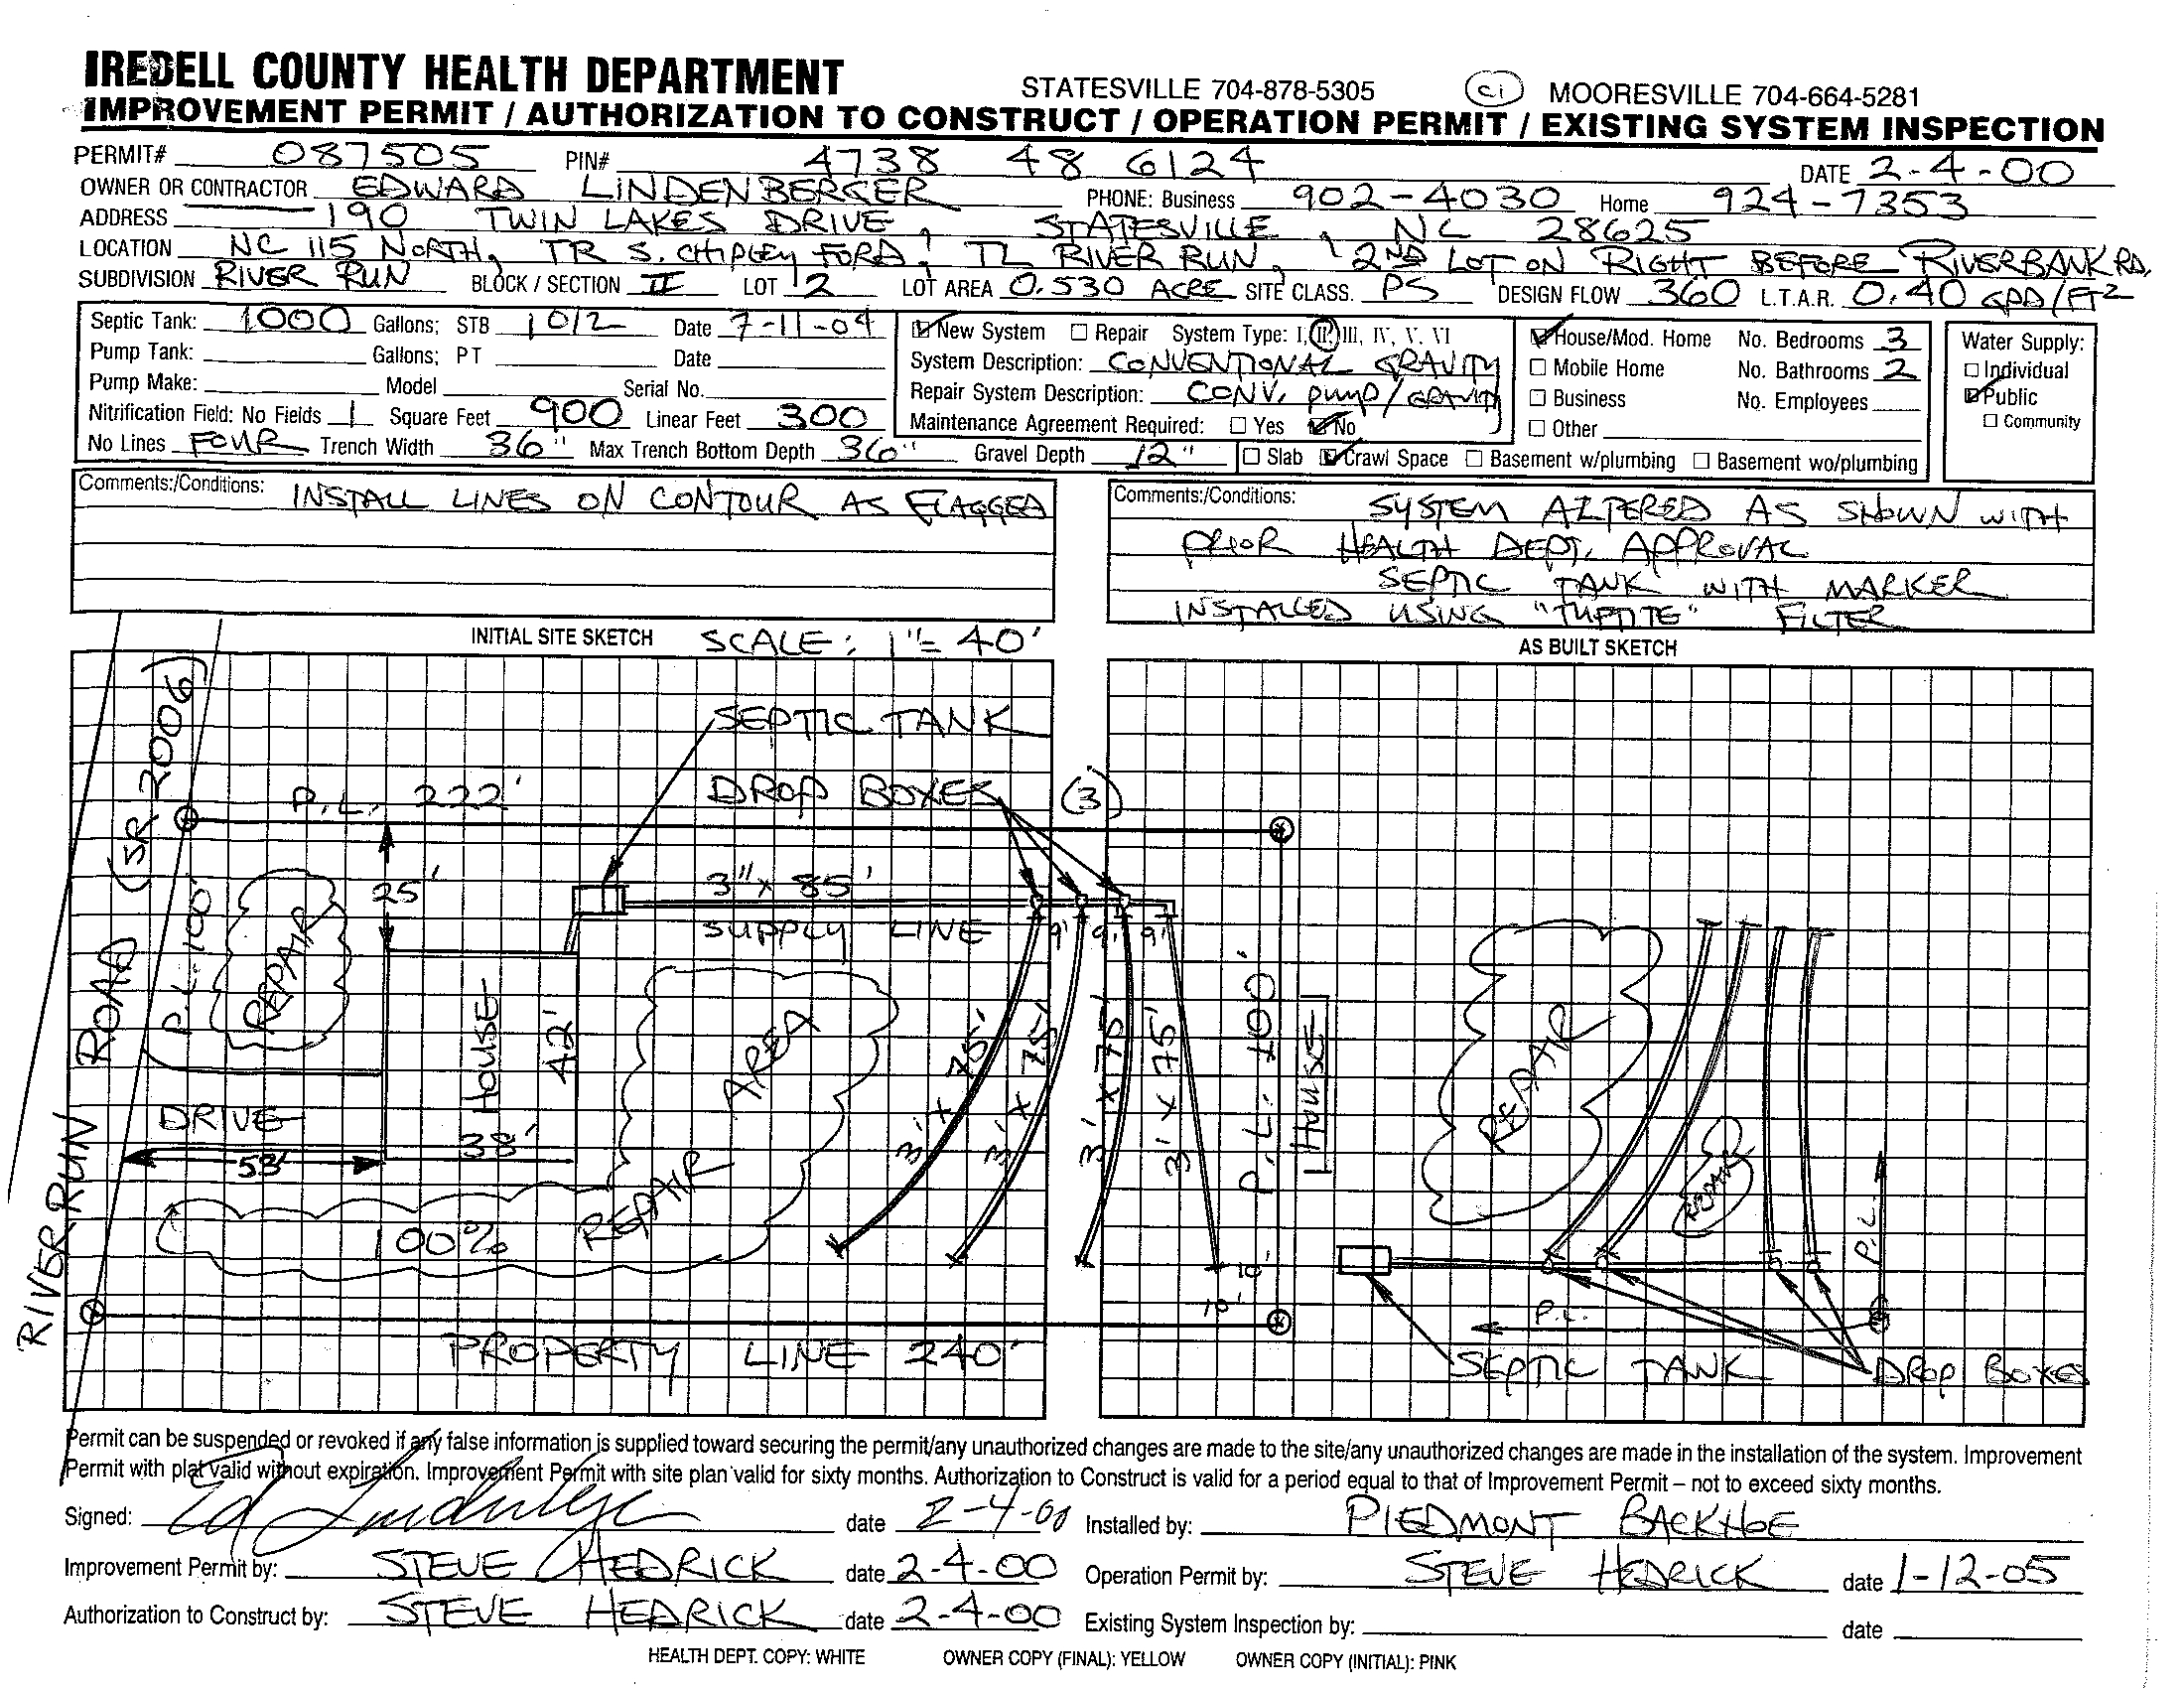 IREDELL COUNTY HEALTH DEPARTMENT STATESVILLE 704-878-5305 ci MOORESVILLE 704-664-5281
IMPROVEMENT PERMIT / AUTHORIZATION TO CONSTRUCT / OPERATION PERMIT / EXISTING SYSTEM INSPECTION
PERMIT# 087505 PIN# 4738 48 6124 DATE 2-4-00
OWNER OR CONTRACTOR EDWARD LINDENBERGER PHONE: Business 902-4030 Home 924-7353
ADDRESS 190 TWIN LAKES DRIVE, STATESVILLE, NC 28625
LOCATION NC 115 NORTH, TR S. CHIPLEY FORD, TL RIVER RUN, 2ND LOT ON RIGHT BEFORE RIVERBANK RD.
SUBDIVISION RIVER RUN BLOCK / SECTION II LOT 2 LOT AREA 0.530 ACRE SITE CLASS. PS DESIGN FLOW 360 L.T.A.R. 0.40 GPD/FT2
Septic Tank: 1000 Gallons; STB 1012 Date 7-11-04
Pump Tank: Gallons; PT Date
Pump Make: Model Serial No.
Nitrification Field: No Fields 1 Square Feet 900 Linear Feet 300
No Lines FOUR Trench Width 36" Max Trench Bottom Depth 36" Gravel Depth 12"
New System Repair System Type: I, II, III, IV, V. VI
System Description: CONVENTIONAL GRAVITY
Repair System Description: CONV. PUMP/GRAVITY
Maintenance Agreement Required: Yes No
House/Mod. Home No. Bedrooms 3
Mobile Home No. Bathrooms 2
Business No. Employees
Other
Slab Crawl Space Basement w/plumbing Basement wo/plumbing
Water Supply:
Individual
Public
Community
Comments:/Conditions: INSTALL LINES ON CONTOUR AS FLAGGED
Comments:/Conditions: SYSTEM ALTERED AS SHOWN WITH
PRIOR HEALTH DEPT. APPROVAL
SEPTIC TANK WITH MARKER
INSTALLED USING "TUFTITE" FILTER
INITIAL SITE SKETCH SCALE: 1"= 40'
AS BUILT SKETCH
SEPTIC TANK
DROP BOXES (3)
P.L. 222'
(SR 2006)
25'
3" x 85'
SUPPLY LINE
9' 9' 9'
P.L. 100'
REPAIR
HOUSE
42'
38'
AREA
3' x 75'
3' x 75'
3' x 75'
3' x 75'
P.L. 100'
DRIVE
53'
REPAIR
100%
10'
10'
RIVER RUN ROAD
PROPERTY LINE 240'
HOUSE
REPAIR
REPAIR
P.L.
P.L.
SEPTIC TANK
DROP BOXES
Permit can be suspended or revoked if any false information is supplied toward securing the permit/any unauthorized changes are made to the site/any unauthorized changes are made in the installation of the system. Improvement
Permit with plat valid without expiration. Improvement Permit with site plan valid for sixty months. Authorization to Construct is valid for a period equal to that of Improvement Permit – not to exceed sixty months.
Signed: Ed Lindenberger date 2-4-00 Installed by: PIEDMONT BACKHOE
Improvement Permit by: STEVE HEDRICK date 2-4-00 Operation Permit by: STEVE HEDRICK date 1-12-05
Authorization to Construct by: STEVE HEDRICK date 2-4-00 Existing System Inspection by: date
HEALTH DEPT. COPY: WHITE OWNER COPY (FINAL): YELLOW OWNER COPY (INITIAL): PINK